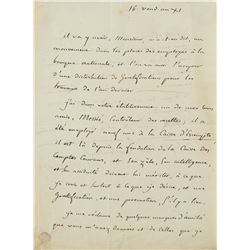 16 vend. an XI.
Il y a, mais, Monsieur, m'a-t-on dit, un
mouvement dans les places des employés à la
banque nationale, et l'on va s'occuper
d'une distribution de Gratifications pour les
travaux de l'an dernier.
j'ai dans votre établissement un de mes bons
amis, Contrôleur des recettes; il a
été employé neuf ans à la Caisse d'Escompte;
il est là depuis la fondation de la Caisse des
Comptes Courans, et son zèle, son intelligence
et son assiduité doivent lui mériter, à ce que
je crois et surtout à ce que je désire, et une
Gratification, et une promotion, s'il y a lieu.
je me réclame de quelques marques d'amitié
que vous m'avez données et de celles que je